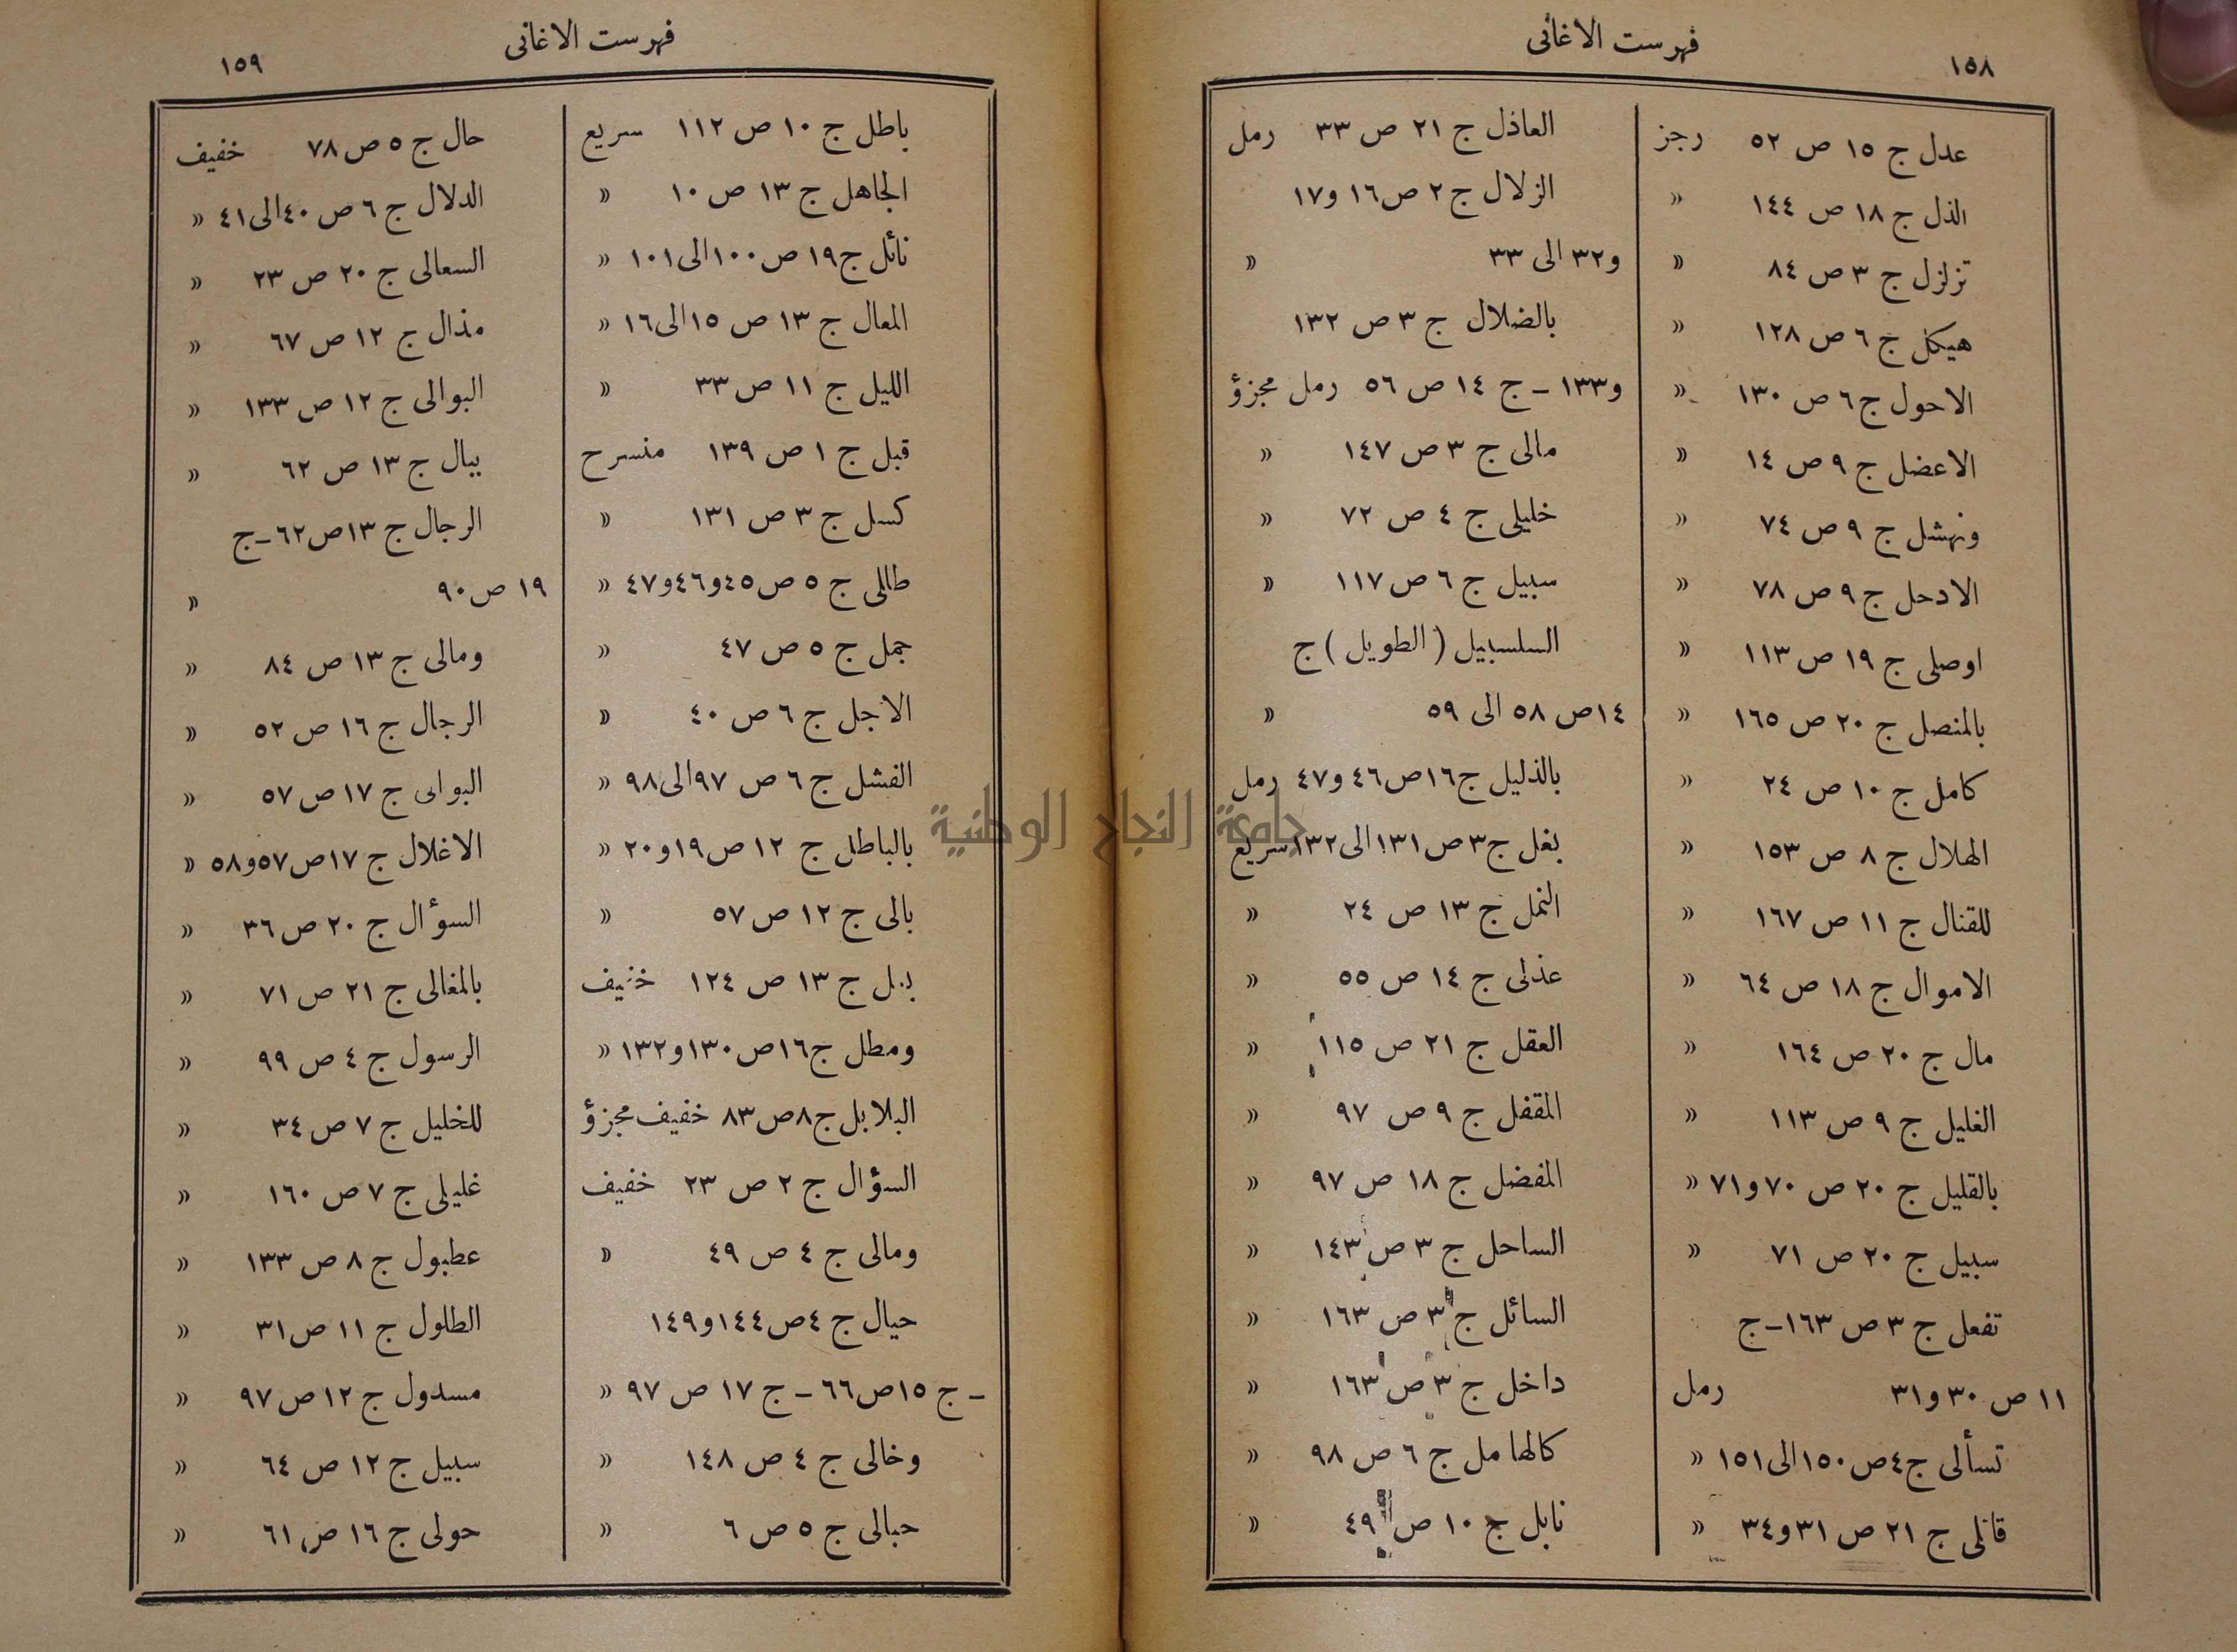 ١٥٨
فهرست الاغانى
عدل ج ١٥ ص ٥٢ رجز
الذل ج ١٨ ص ١٤٤ «
تزلزل ج ٣ ص ٨٤ «
هيكل ج ٦ ص ١٢٨ «
الاحول ج ٦ ص ١٣٠ «
الاعضل ج ٩ ص ١٤ «
ونهشل ج ٩ ص ٧٤ «
الادحل ج ٩ ص ٧٨ «
اوصلى ج ١٩ ص ١١٣ «
بالمنصل ج ٢٠ ص ١٦٥ «
كامل ج ١٠ ص ٢٤ «
الهلال ج ٨ ص ١٥٣ «
للقتال ج ١١ ص ١٦٧ «
الاموال ج ١٨ ص ٦٤ «
مال ج ٢٠ ص ١٦٤ «
الغليل ج ٩ ص ١١٣ «
بالقليل ج ٢٠ ص ٧٠ و٧١ «
سبيل ج ٢٠ ص ٧١ «
تفعل ج ٣ ص ١٦٣ – ج
١١ ص ٣٠ و٣١ رمل
تسألى ج ٤ ص ١٥٠ الى ١٥١ «
قاتلى ج ٢١ ص ٣١ و٣٤ «
العاذل ج ٢١ ص ٣٣ رمل
الزلال ج ٢ ص ١٦ و١٧
و٣٢ الى ٣٣ «
بالضلال ج ٣ ص ١٣٢
و١٣٣ – ج ١٤ ص ٥٦ رمل مجزؤ
مالى ج ٣ ص ١٤٧ «
خليلى ج ٤ ص ٧٢ «
سبيل ج ٦ ص ١١٧ «
السلسبيل (الطويل) ج
١٤ ص ٥٨ الى ٥٩ «
بالذليل ج ١٦ ص ٤٦ و٤٧ رمل
بغل ج ٣ ص ١٣١ الى ١٣٢ سريع
النمل ج ١٣ ص ٢٤ «
عذلى ج ١٤ ص ٥٥ «
العقل ج ٢١ ص ١١٥ «
المقفل ج ٩ ص ٩٧ «
المفضل ج ١٨ ص ٩٧ «
الساحل ج ٣ ص ١٤٣ «
السائل ج ٣ ص ١٦٣ «
داخل ج ٣ ص ١٦٣ «
كالهامل ج ٦ ص ٩٨ «
نابل ج ١٠ ص ٤٩ «
جامعة النجاح الوطنية
فهرست الاغانى
١٥٩
باطل ج ١٠ ص ١١٢ سريع
الجاهل ج ١٣ ص ١٠ «
نائل ج ١٩ ص ١٠٠ الى ١٠١ «
المعال ج ١٣ ص ١٥ الى ١٦ «
الليل ج ١١ ص ٣٣ «
قبل ج ١ ص ١٣٩ منسرح
كسل ج ٣ ص ١٣١ «
طللى ج ٥ ص ٤٥ و٤٦ و٤٧ «
جمل ج ٥ ص ٤٧ «
الاجل ج ٦ ص ٤٠ «
الفشل ج ٦ ص ٩٧ الى ٩٨ «
بالباطل ج ١٢ ص ١٩ و٢٠ «
بالى ج ١٢ ص ٥٧ «
ج ١٣ ص ١٢٤ خفيف
ومطل ج ١٦ ص ١٣٠ و١٣٢ «
البلابل ج ٨ ص ٨٣ خفيف مجزؤ
السؤال ج ٢ ص ٢٣ خفيف
ومالى ج ٤ ص ٤٩ «
حيال ج ٤ ص ١٤٤ و١٤٩
– ج ١٥ ص ٦٦ – ج ١٧ ص ٩٧ «
وخالى ج ٤ ص ١٤٨ «
حبالى ج ٥ ص ٦ «
حال ج ٥ ص ٧٨ خفيف
الدلال ج ٦ ص ٤٠ الى ٤١ «
السعالى ج ٢٠ ص ٢٣ «
مذال ج ١٢ ص ٦٧ «
البوالى ج ١٢ ص ١٣٣ «
ببال ج ١٣ ص ٦٢ «
الرجال ج ١٣ ص ٦٢ – ج
١٩ ص ٩٠ «
ومالى ج ١٣ ص ٨٤ «
الرجال ج ١٦ ص ٥٢ «
البوالى ج ١٧ ص ٥٧ «
الاغلال ج ١٧ ص ٥٧ و٥٨ «
السؤال ج ٢٠ ص ٣٦ «
بالمغالى ج ٢١ ص ٧١ «
الرسول ج ٤ ص ٩٩ «
للخليل ج ٧ ص ٣٤ «
غليلى ج ٧ ص ١٦٠ «
عطبول ج ٨ ص ١٣٣ «
الطلول ج ١١ ص ٣١ «
مسدول ج ١٢ ص ٩٧ «
سبيل ج ١٢ ص ٦٤ «
حولى ج ١٦ ص ٦١ «